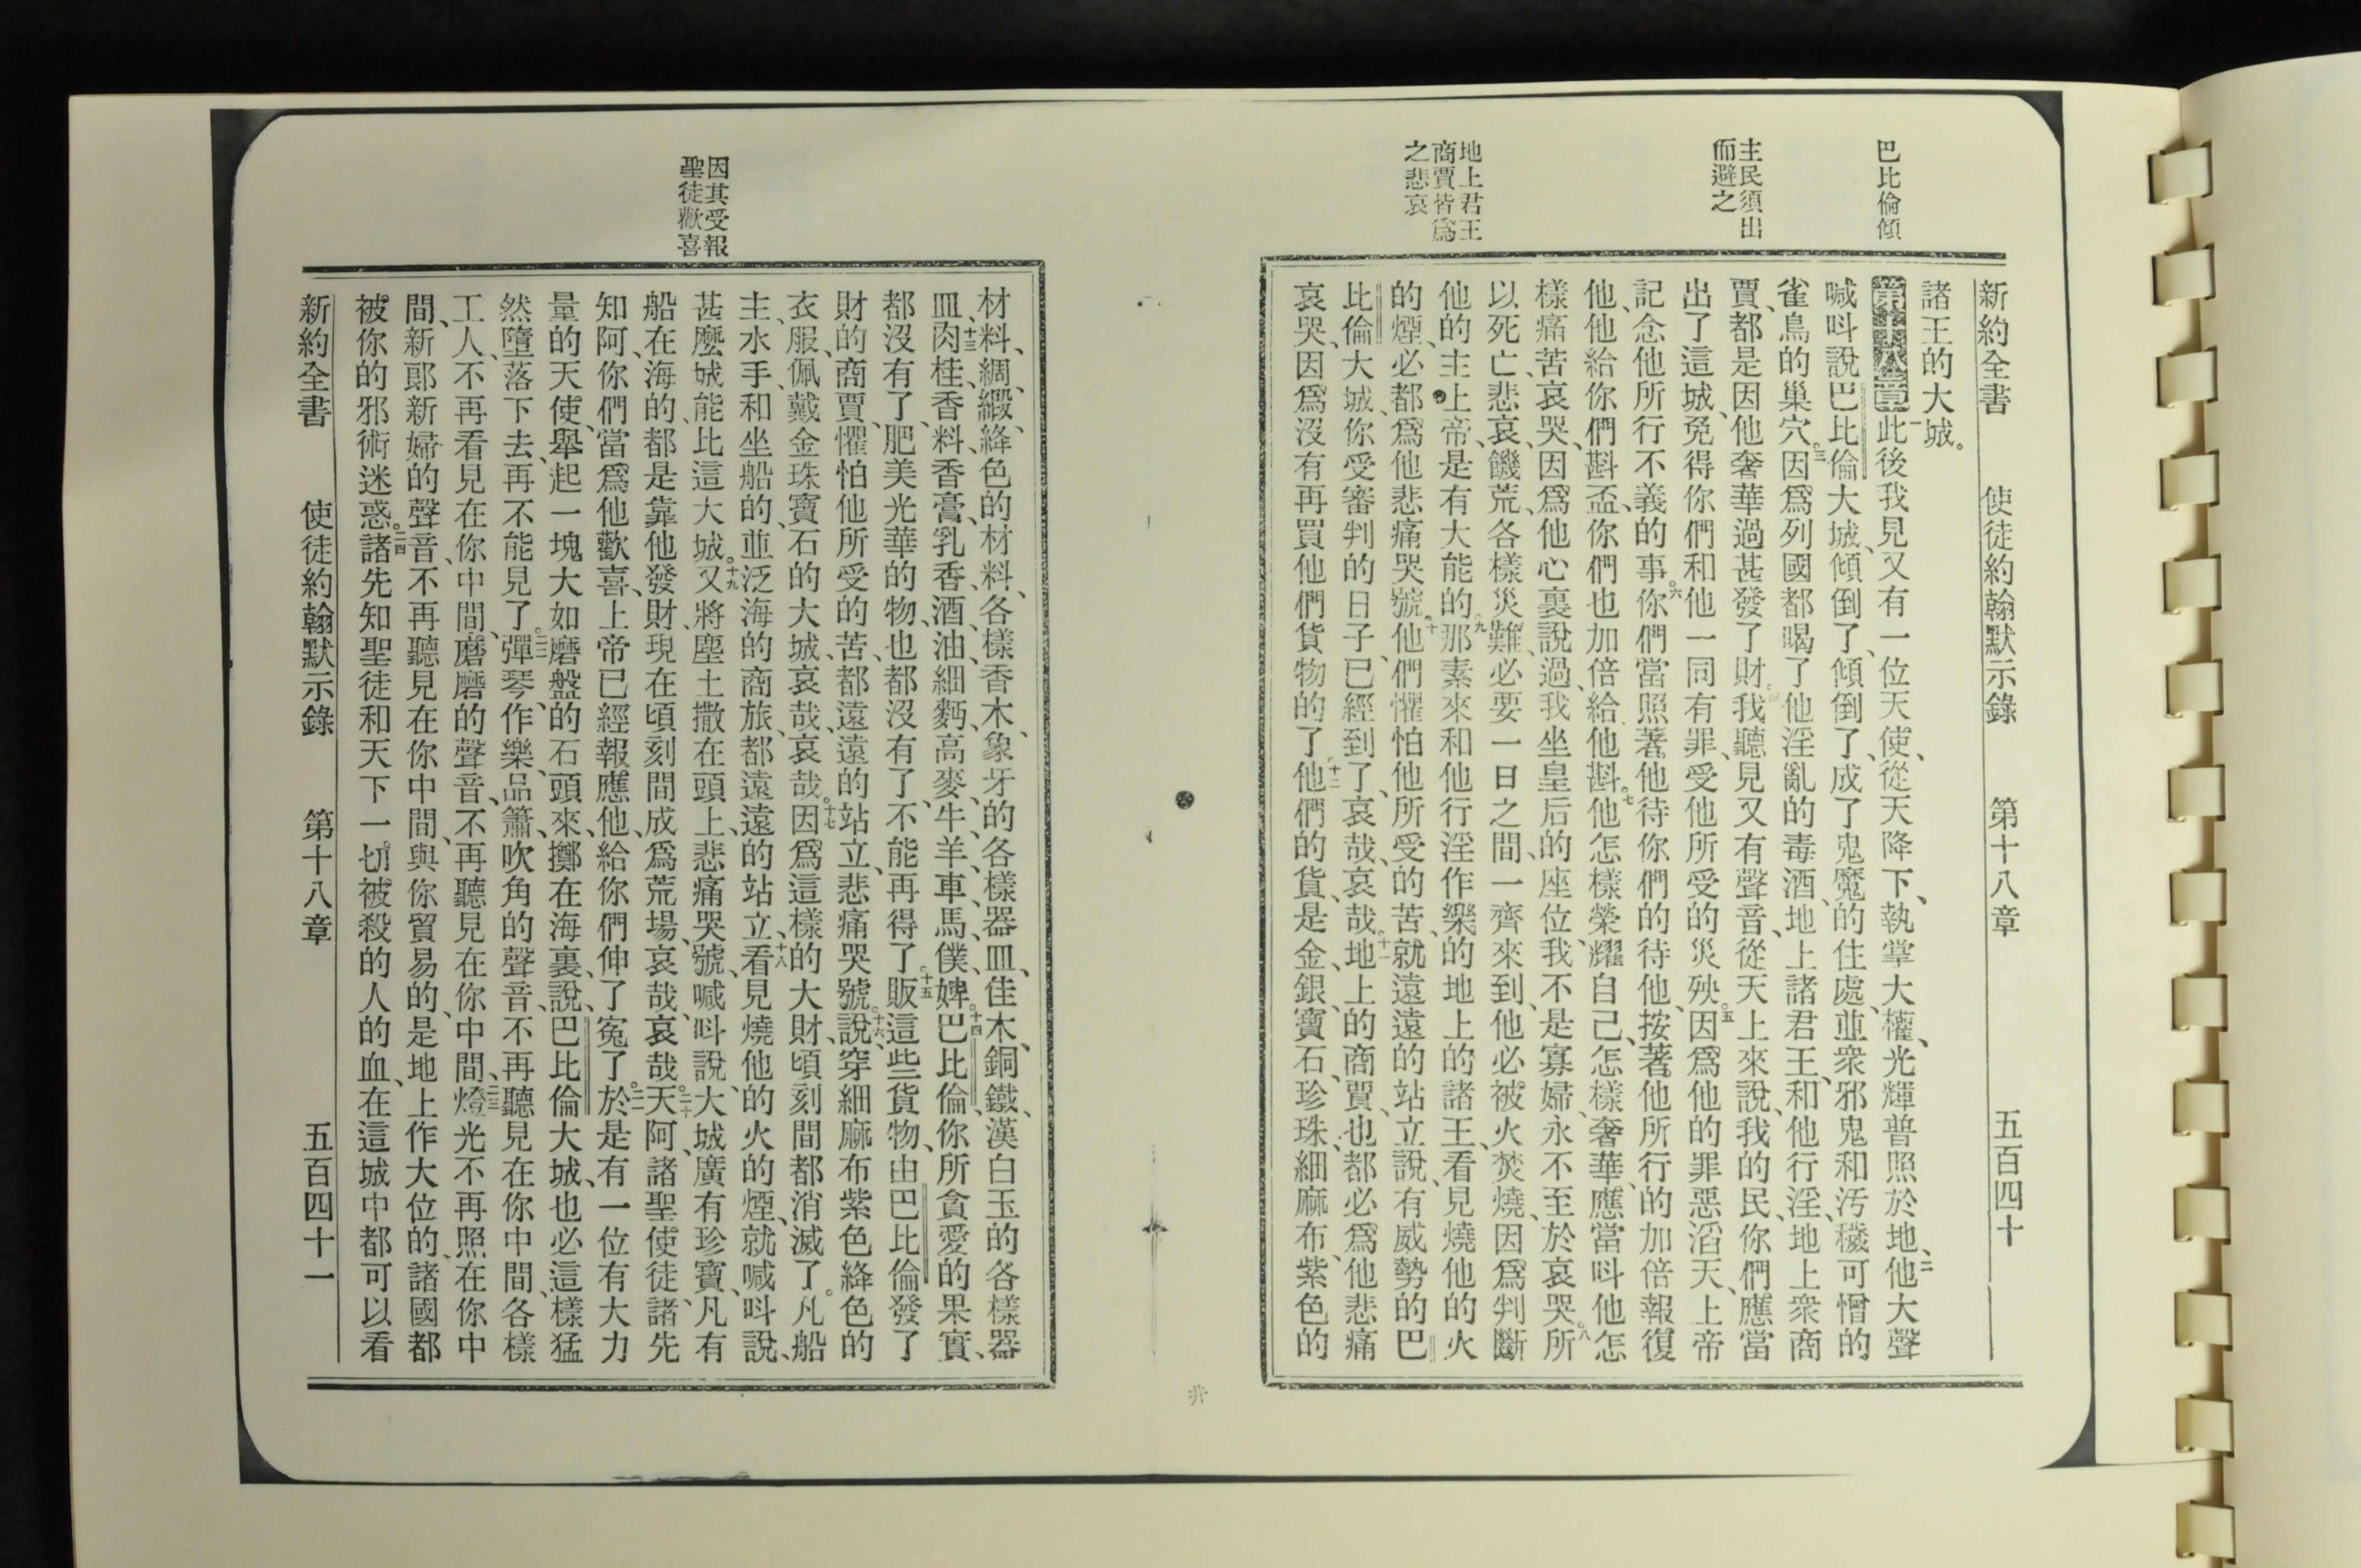 巴比倫傾
主民須出
而避之
地上君王
商賈皆爲
之悲哀
新約全書 使徒約翰默示錄 第十八章 五百四十
諸王的大城。
第十八章一此後我見又有一位天使、從天降下、執掌大權、光輝普照於地、二他大聲
喊呌說、巴比倫大城、傾倒了、傾倒了、成了鬼魔的住處、並衆邪鬼和汚穢可憎的
雀鳥的巢穴。三因爲列國都喝了他淫亂的毒酒、地上諸君王、和他行淫、地上衆商
賈、都是因他奢華過甚發了財。四我聽見又有聲音、從天上來說、我的民、你們應當
出了這城、免得你們和他一同有罪、受他所受的災殃。五因爲他的罪惡滔天、上帝
記念他所行不義的事。六你們當照著他待你們的待他、按著他所行的加倍報復
他、他給你們斟盃、你們也加倍給他斟。七他怎樣榮耀自己、怎樣奢華、應當呌他怎
樣痛苦哀哭、因爲他心裏說過、我坐皇后的座位、我不是寡婦、永不至於哀哭。八所
以死亡、悲哀、饑荒、各樣災難、必要一日之間、一齊來到、他必被火焚燒、因爲判斷
他的主上帝、是有大能的。九那素來和他行淫作樂的地上的諸王、看見燒他的火
的煙、必都爲他悲痛哭號。十他們懼怕他所受的苦、就遠遠的站立說、有威勢的巴
比倫大城、你受審判的日子、已經到了、哀哉、哀哉。十一地上的商賈、也都必爲他悲痛
哀哭、因爲沒有再買他們貨物的了。十二他們的貨、是金、銀、寶石、珍珠、細麻布、紫色的
材料、綢、緞、絳色的材料、各樣香木、象牙的各樣器皿、佳木、銅、鐵、漢白玉的各樣器
皿、十三肉桂、香料、香膏、乳香、酒、油、細麪、高麥、牛、羊、車、馬、僕、婢。十四巴比倫、你所貪愛的果實、
都沒有了、肥美光華的物、也都沒有了、不能再得了。十五販這些貨物、由巴比倫發了
財的商賈、懼怕他所受的苦、都遠遠的站立、悲痛哭號。十六說、穿細麻布紫色絳色的
衣服、佩戴金珠寶石的大城、哀哉、哀哉。十七因爲這樣的大財、頃刻間都消滅了。凡船
主、水手、和坐船的、並泛海的商旅、都遠遠的站立、十八看見燒他的火的煙、就喊呌說、
甚麼城能比這大城。十九又將塵土撒在頭上、悲痛哭號、喊呌說、大城廣有珍寶、凡有
船在海的、都是靠他發財、現在頃刻間成爲荒場、哀哉、哀哉。二十天阿、諸聖使徒、諸先
知阿、你們當爲他歡喜、上帝已經報應他、給你們伸了寃了。二一於是有一位有大力
量的天使、舉起一塊大如磨盤的石頭來、擲在海裏、說、巴比倫大城、也必這樣猛
然墮落下去、再不能見了。二二彈琴、作樂、品簫、吹角的聲音、不再聽見在你中間、各樣
工人、不再看見在你中間、磨磨的聲音、不再聽見在你中間、二三燈光不再照在你中
間、新郞新婦的聲音、不再聽見在你中間、與你貿易的、是地上作大位的、諸國都
被你的邪術迷惑。二四諸先知聖徒和天下一切被殺的人的血、在這城中都可以看
新約全書 使徒約翰默示錄 第十八章 五百四十一
因其受報
聖徒歡喜